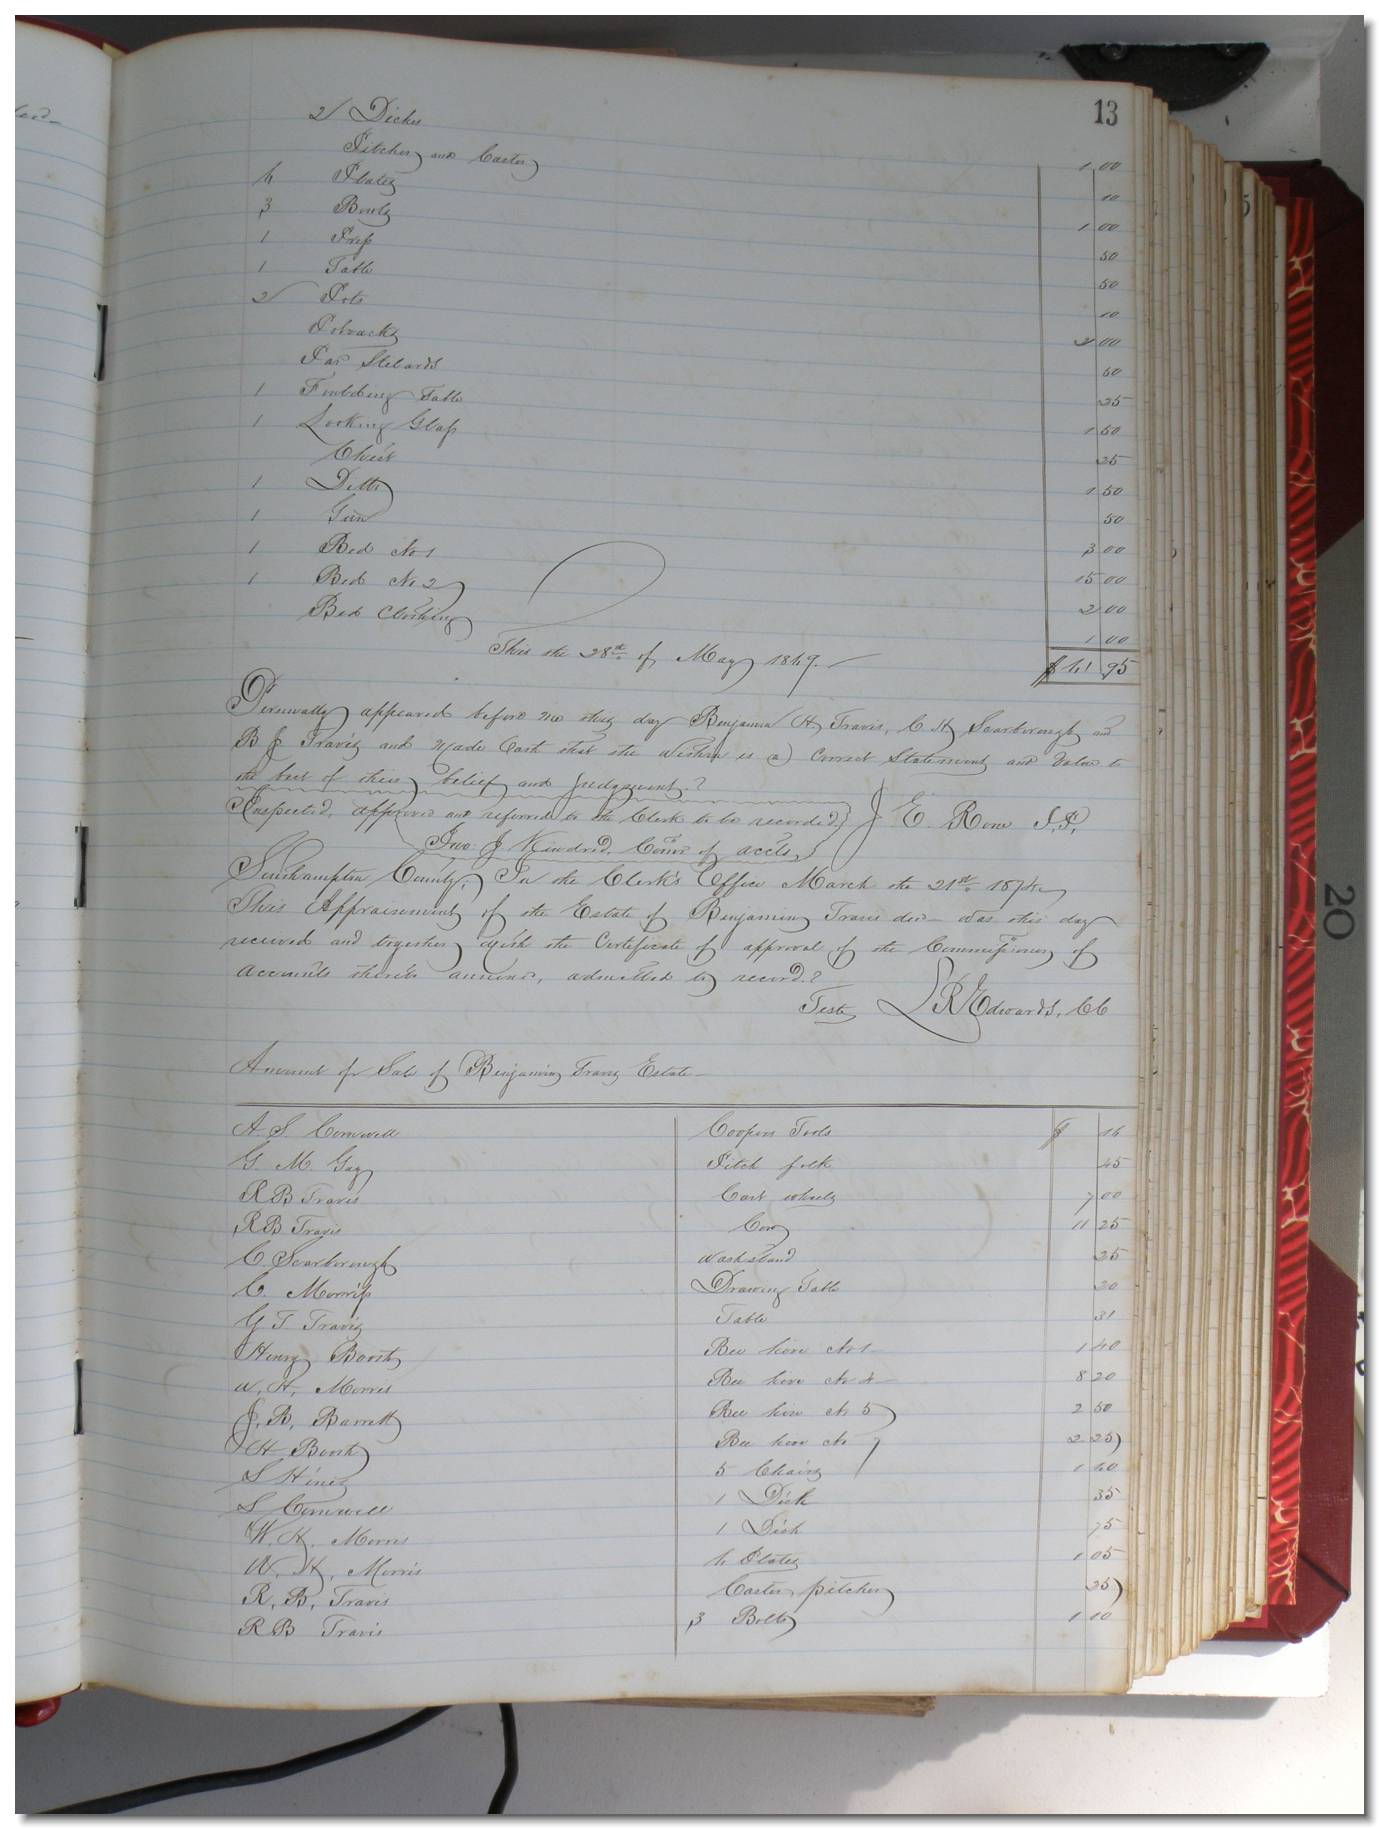 13
2 Dishes 1 00
Pitcher and Caster 10
4 Plates 1 00
3 Bowls 50
1 Table 10
2 Pots 2 00
Potracks 50
Par Stilards 25
1 Table 1 50
1 Looking Glass 25
Chest 1 50
1 Ditto 50
1 Gun 3 00
1 Bed No 1 15 00
1 Bed No 2 2 00
Bed Clothing 1 00
This the 28th of May 1849. $41 95
Personally appeared before me this day Benjamin H Travis, C H Scarborough and
B J Travis and made Oath that the Within is a Correct Statement and Value to
the best of their belief and Judgement.
Inspected, approved and referred to the Clerk to be recorded. J. E. Rowe J.P.
Jno. J. Kindred, Comr of accts,
Southampton County; In the Clerk's Office March the 21st 1874
This Appraisement of the Estate of Benjamin Travis decd was this day
received and together with the Certificate of approval of the Commissioner of
Accounts thereto annexed, admitted to record.
Teste L R Edwards, CC
Amount of Sale of Benjamin Travis Estate
A. S. Cornwell Coopers Tools $ 15
G. M. Gay Pitch folk 45
R B Travis Cart wheels 7 00
R B Travis Cow 11 25
C. Scarborough washstand 25
C. Morriss Drawing Table 20
G T Travis Table 31
Henry Booth Bee hive No 1 1 40
W. H. Morris Bee hive No 4 8 20
J. B. Barrett Bee hive No 5 2 50
H Booth Bee hive No 7 2 25
S Hines 5 Chairs 1 40
S Cornwell 1 Dish 35
W. H. Morris 1 Dish 75
W. H. Morris 4 Plates 1 05
R. B. Travis Caster pitcher 25
R B Travis 3 1 10
20